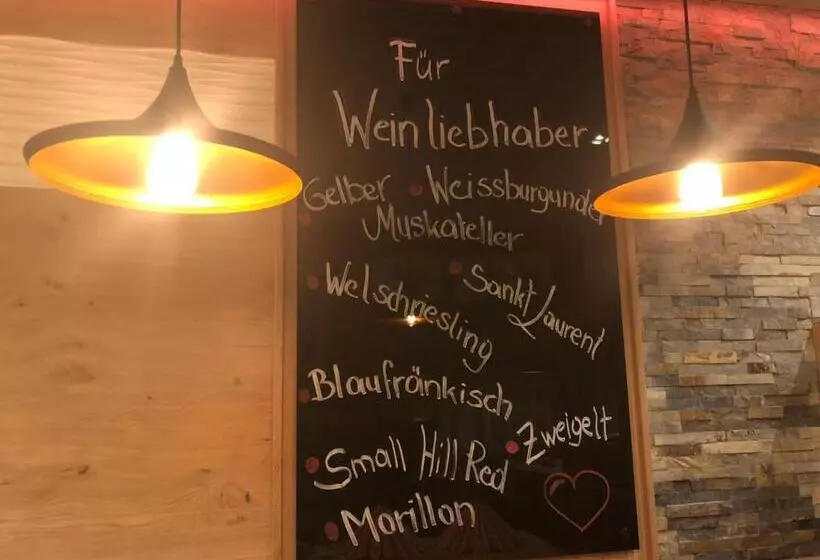 Für
Weinliebhaber
Gelber Muskateller
Weissburgunder
Welschriesling
Sankt Laurent
Blaufränkisch
Zweigelt
Small Hill Red
Morillon